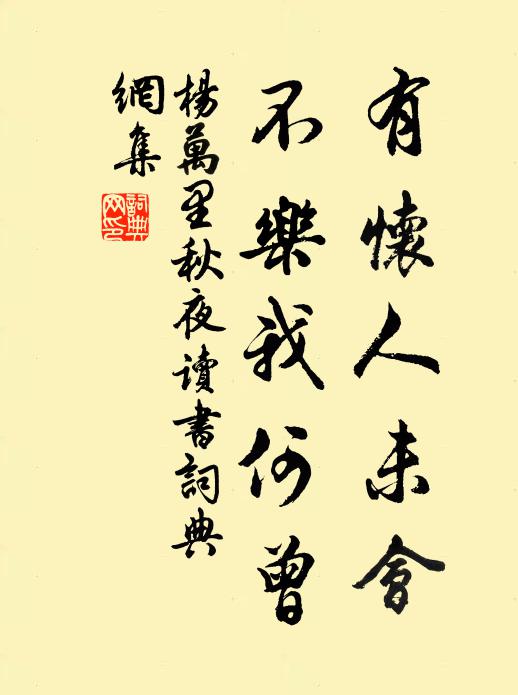 有懷人未會
不樂我何曾
楊萬里秋夜讀書詞典
網集
詞典
网印